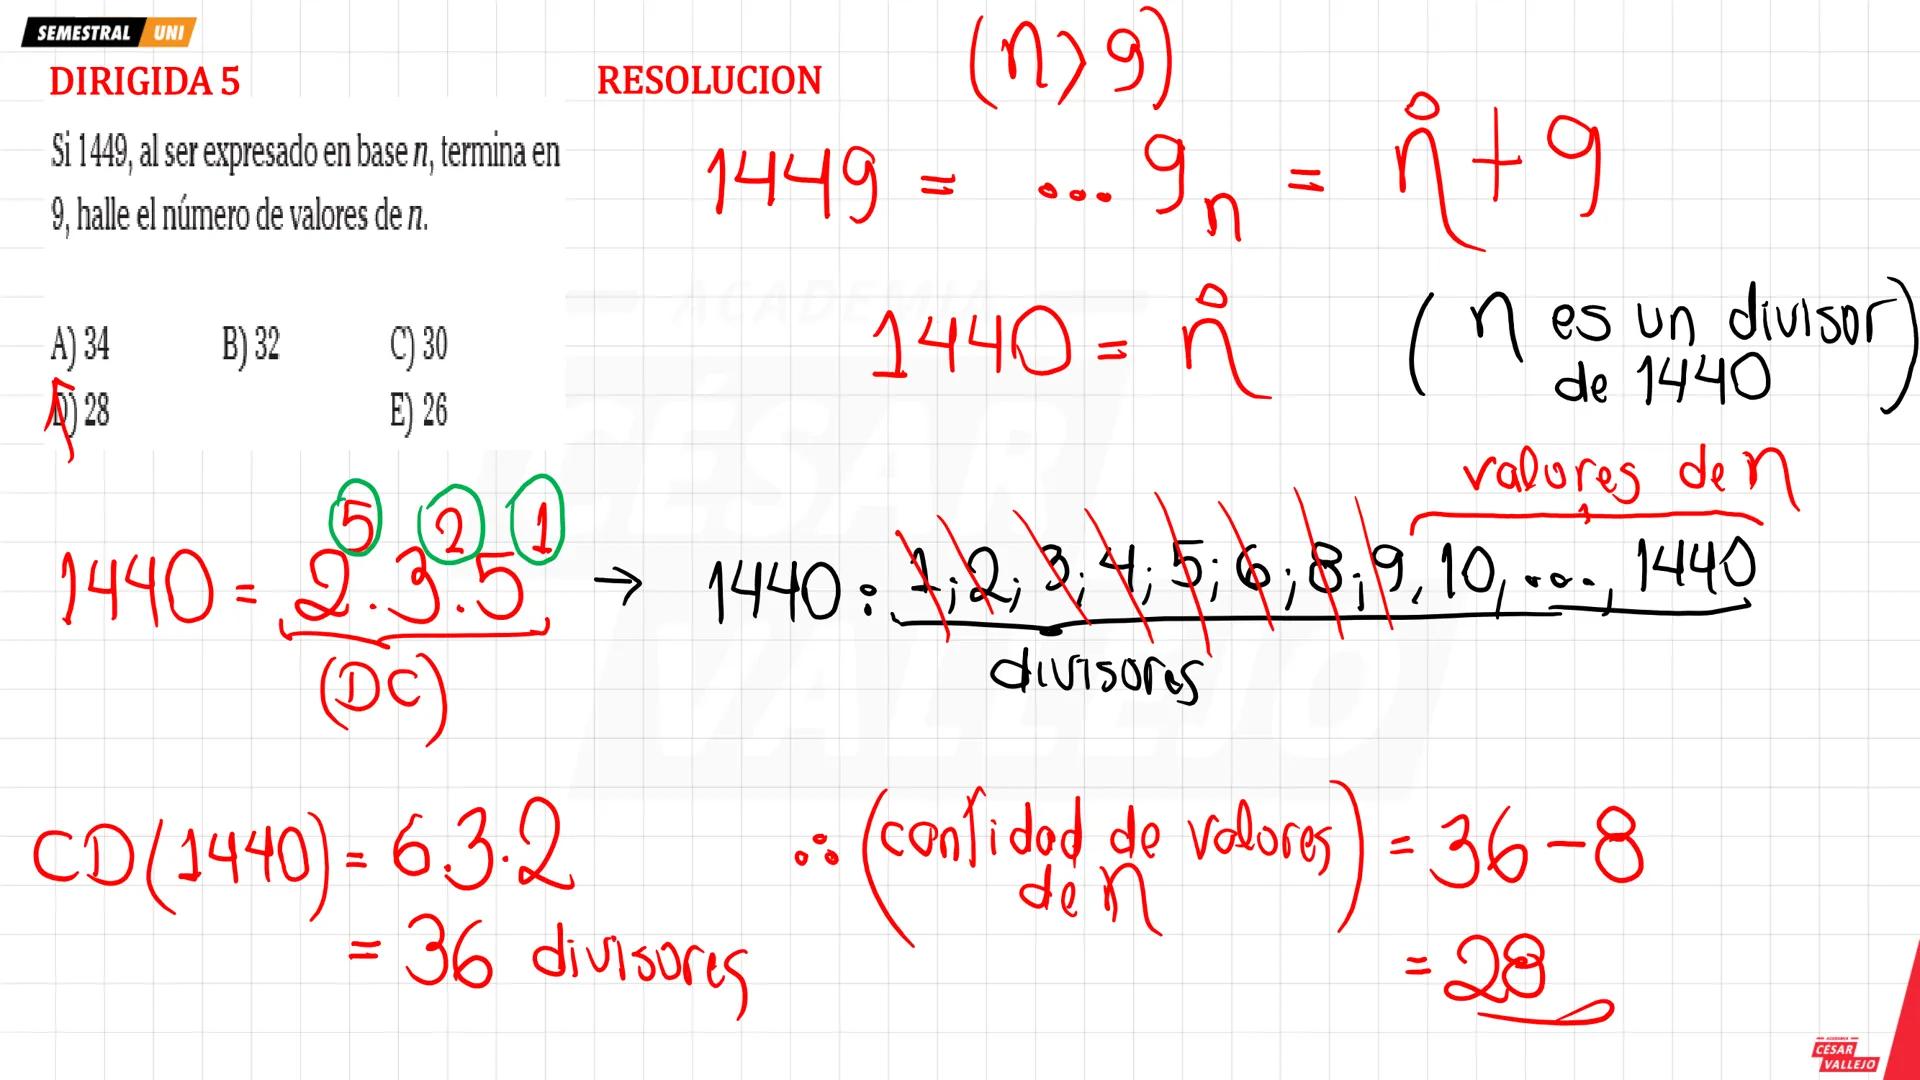 SEMESTRAL UNI
DIRIGIDA 5
Si 1449, al ser expresado en base n, termina en
9, halle el número de valores de n.
A) 34 B) 32 C) 30
D) 28 E) 26
RESOLUCION
(n > 9)
1449 = ... 9ₙ = n̊ + 9
1440 = n̊
(n es un divisor
de 1440)
1440 = 2⁵ . 3² . 5¹
(DC)
→ 1440 : 1; 2; 3; 4; 5; 6; 8; 9, 10, ..., 1440
valores de n
divisores
CD(1440) = 6.3.2
= 36 divisores
∴ (cantidad de valores
de n) = 36 - 8
= 28
ACADEMIA
CÉSAR
VALLEJO
ACADEMIA
CÉSAR
VALLEJO